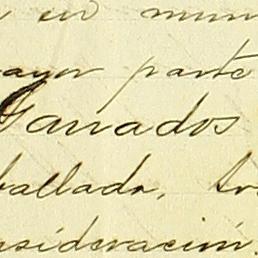 en mun
ayor parte
Ganados
ballada, tra
nsideración.